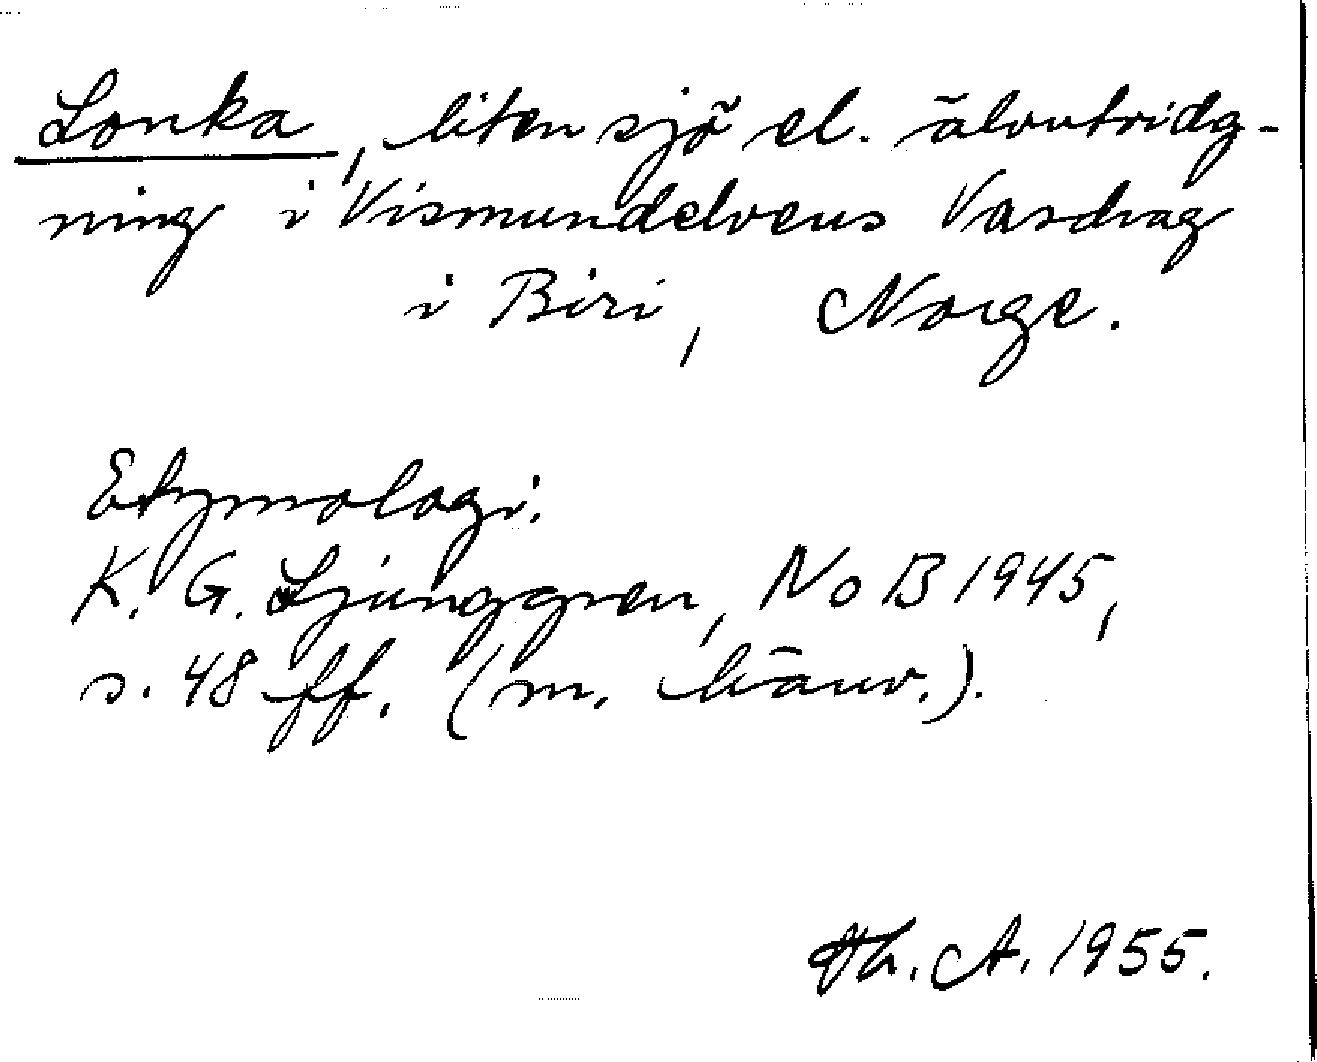 Lonka, liten sjö el. älvutvidg-
ning i Vismundelvens Vasdrag
i Biri, Norge.
Etymologi:
K. G. Ljunggren, NoB 1945,
s. 48 ff. (m. hänv.).
Th. A. 1955.